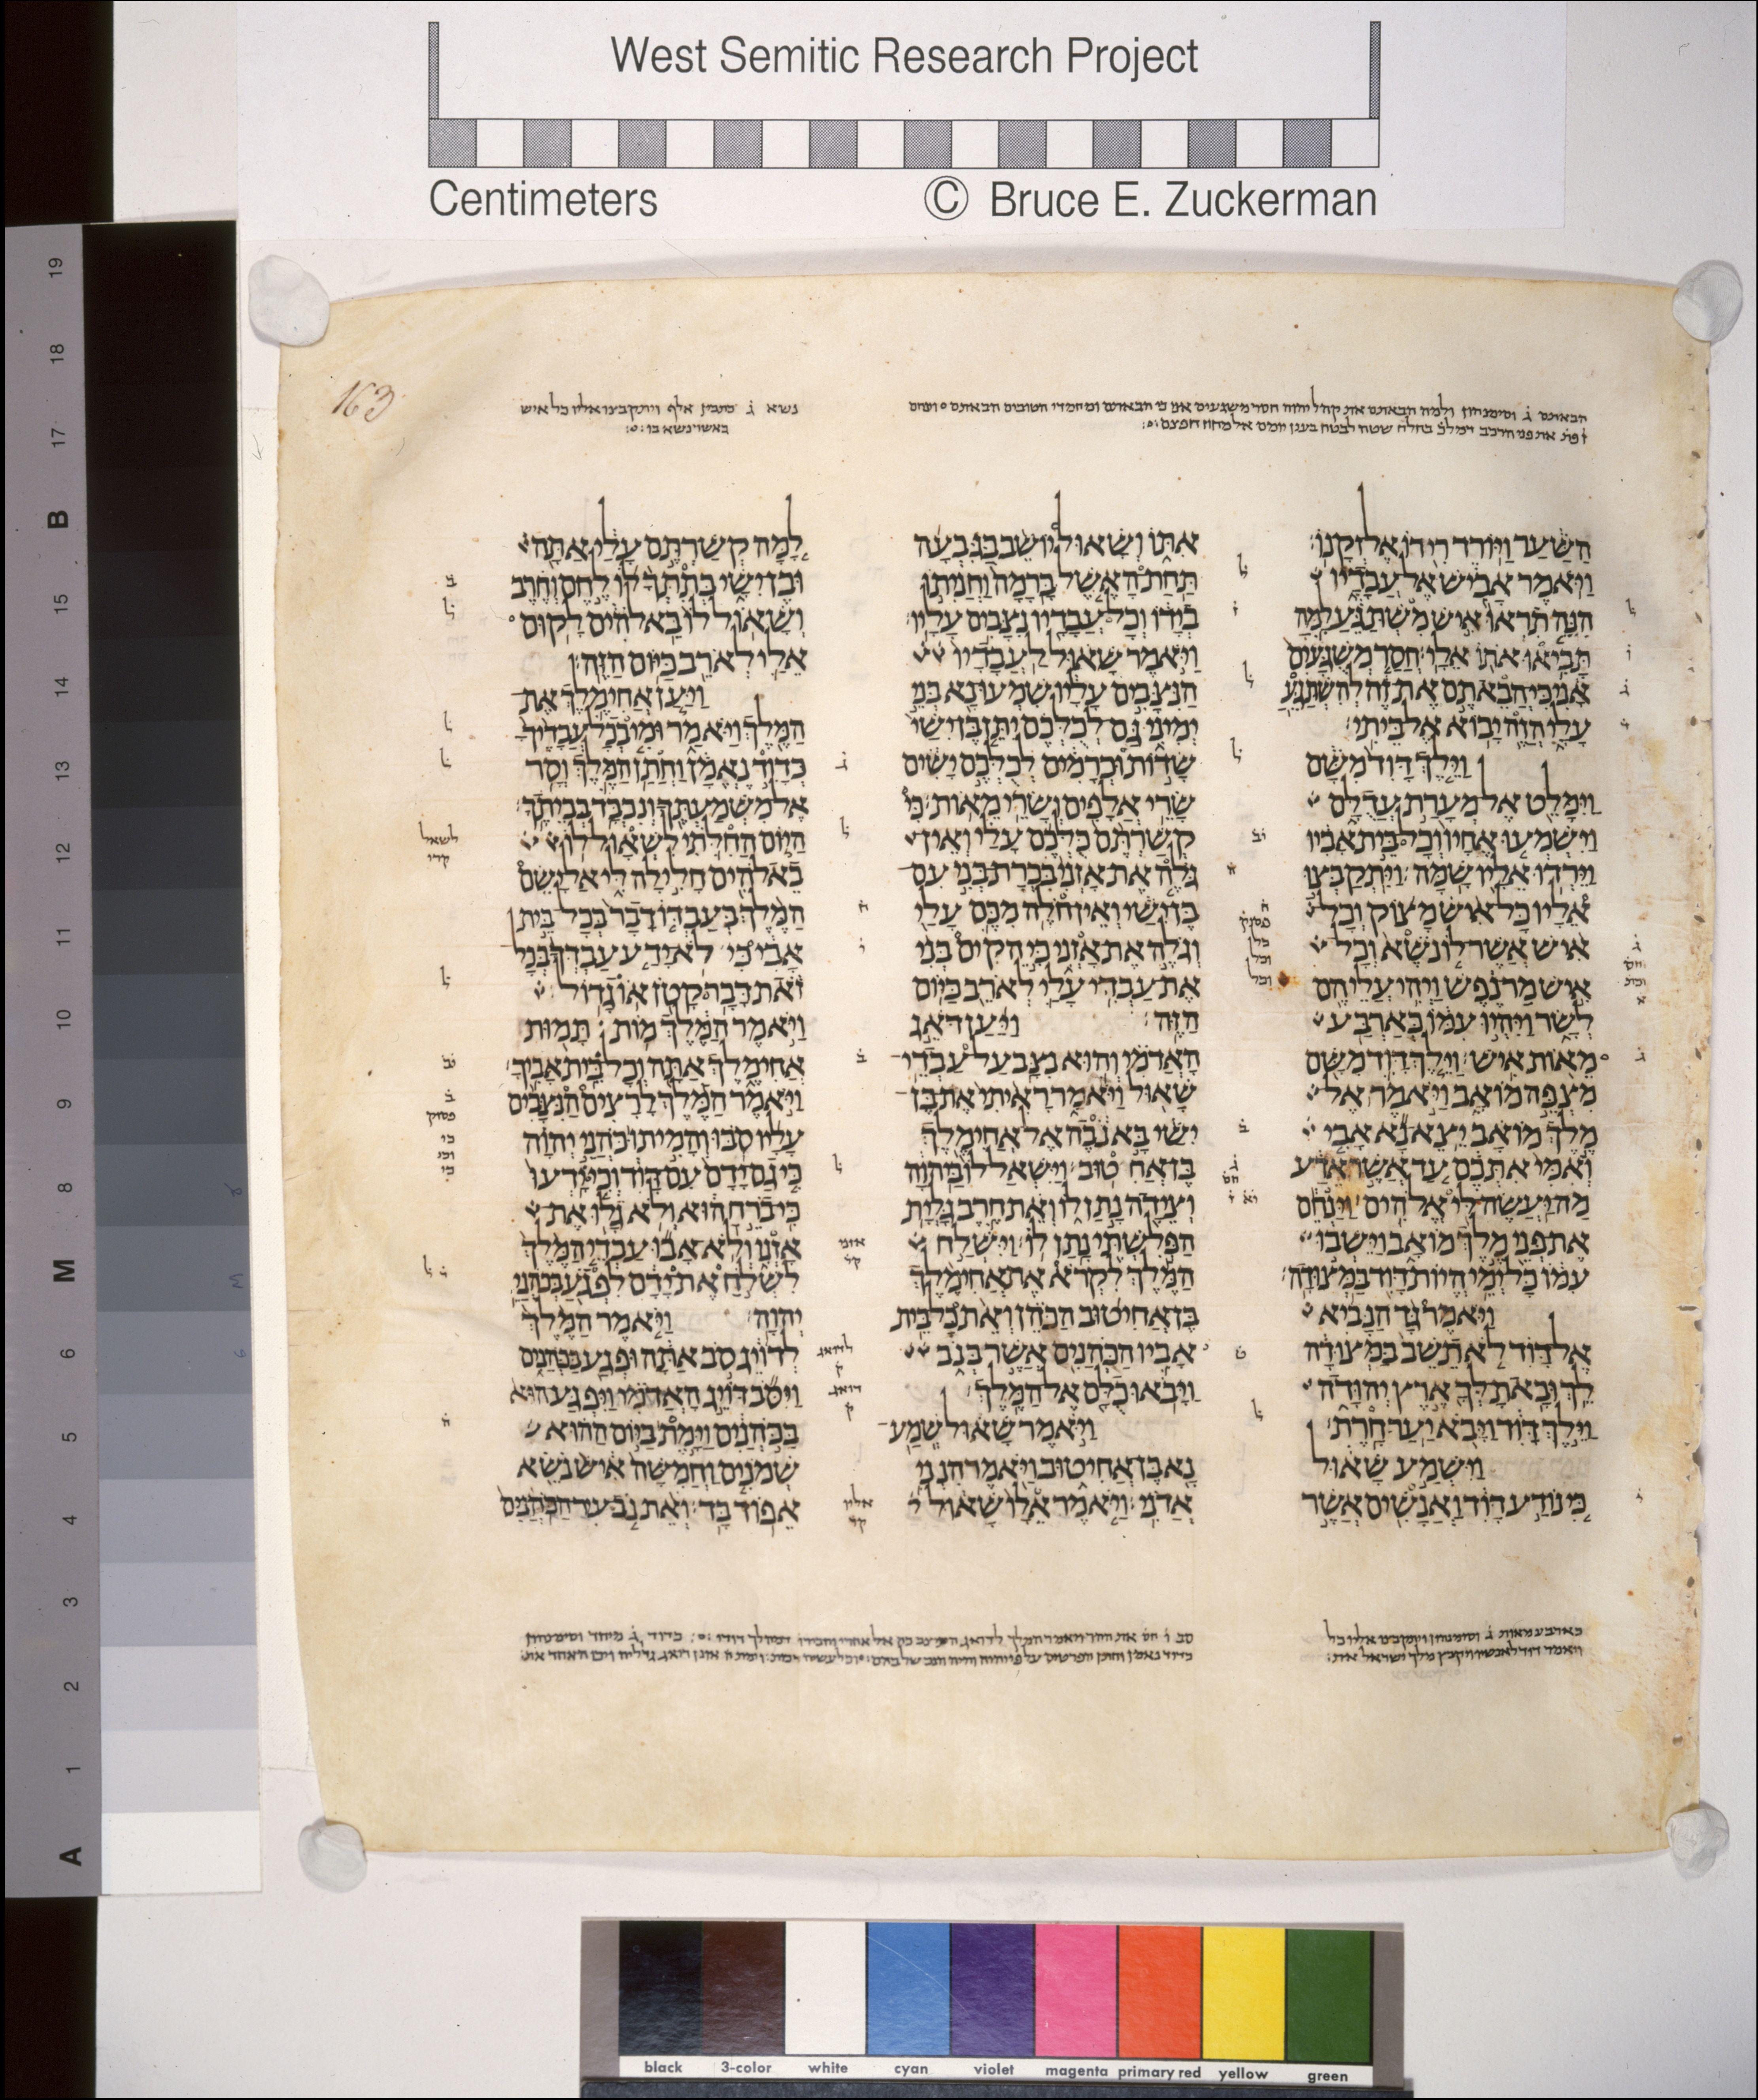 West Semitic Research Project
Centimeters © Bruce E. Zuckerman
163
השער ויורד רירו אל זקנו׃
ויאמר אכיש אל עבדיו
הנה תראו איש משתגע למה
תביאו אתו אלי׃ חסר משגעים
אני כי הבאתם את זה להשתגע
עלי הזה יבוא אל ביתי׃
וילך דוד משם
וימלט אל מערת עדלם
וישמעו אחיו וכל בית אביו
וירדו אליו שמה׃ ויתקבצו
אליו כל איש מצוק וכל
איש אשר לו נשא וכל
איש מר נפש ויהי עליהם
לשר ויהיו עמו כארבע
מאות איש׃ וילך דוד משם
מצפה מואב ויאמר אל
מלך מואב יצא נא אבי
ואמי אתכם עד אשר אדע
מה יעשה לי אלהים׃ וינחם
את פני מלך מואב וישבו
עמו כל ימי היות דוד במצודה׃
ויאמר גד הנביא
אל דוד לא תשב במצודה
לך ובאת לך ארץ יהודה
וילך דוד ויבא יער חרת׃
וישמע שאול
כי נודע דוד ואנשים אשר
אתו ושאול יושב בגבעה
תחת האשל ברמה וחניתו
בידו וכל עבדיו נצבים עליו׃
ויאמר שאול לעבדיו
הנצבים עליו שמעו נא בני
ימיני גם לכלכם יתן בן ישי
שדות וכרמים לכלכם ישים
שרי אלפים ושרי מאות׃ כי
קשרתם כלכם עלי ואין
גלה את אזני בכרת בני עם
בן ישי ואין חלה מכם עלי
וגלה את אזני כי הקים בני
את עבדי עלי לארב כיום
הזה׃ ויען דאג
האדמי והוא נצב על עבדי
שאול ויאמר ראיתי את בן
ישי בא נבה אל אחימלך
בן אחטוב׃ וישאל לו ביהוה
וצידה נתן לו ואת חרב גלית
הפלשתי נתן לו׃ וישלח
המלך לקרא את אחימלך
בן אחיטוב הכהן ואת כל בית
אביו הכהנים אשר בנב
ויבאו כלם אל המלך׃
ויאמר שאול שמע
נא בן אחיטוב ויאמר הנני
אדני׃ ויאמר אלו שאול
למה קשרתם עלי אתה
ובן ישי בתתך לו לחם וחרב
ושאול לו באלהים לקום
אלי לארב כיום הזה׃
ויען אחימלך את
המלך ויאמר ומי בכל עבדיך
כדוד נאמן וחתן המלך וסר
אל משמעתך ונכבד בביתך׃
היום החלתי לשאול לו
באלהים חלילה לי אל ישם
המלך בעבדו דבר בכל בית
אבי כי לא ידע עבדך בכל
זאת דבר קטן או גדול׃
ויאמר המלך מות תמות
אחימלך אתה וכל בית אביך׃
ויאמר המלך לרצים הנצבים
עליו סבו והמיתו כהני יהוה
כי גם ידם עם דוד וכי ידעו
כי ברח הוא ולא גלו את
אזנו ולא אבו עבדי המלך
לשלח את ידם לפגע בכהני
יהוה׃ ויאמר המלך
לדויג סב אתה ופגע בכהנים
ויסב דויג האדמי ויפגע הוא
בכהנים וימת ביום ההוא
שמנים וחמשה איש נשא
אפוד בד׃ ואת נב עיר הכהנים
black 3-color white cyan violet magenta primary red yellow green
A 1 2 3 4 5 6 M 8 9 10 11 12 13 14 15 B 17 18 19